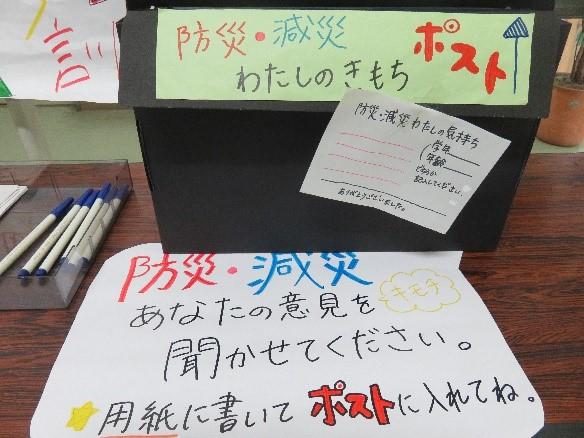 防災・減災
わたしのきもち
ポスト
防災・減災わたしの気持ち
学年
年齢
記入してください。
ありがとうございました。
防災・減災
あなたの意見を
キモチ
聞かせてください。
用紙に書いてポストに入れてね。